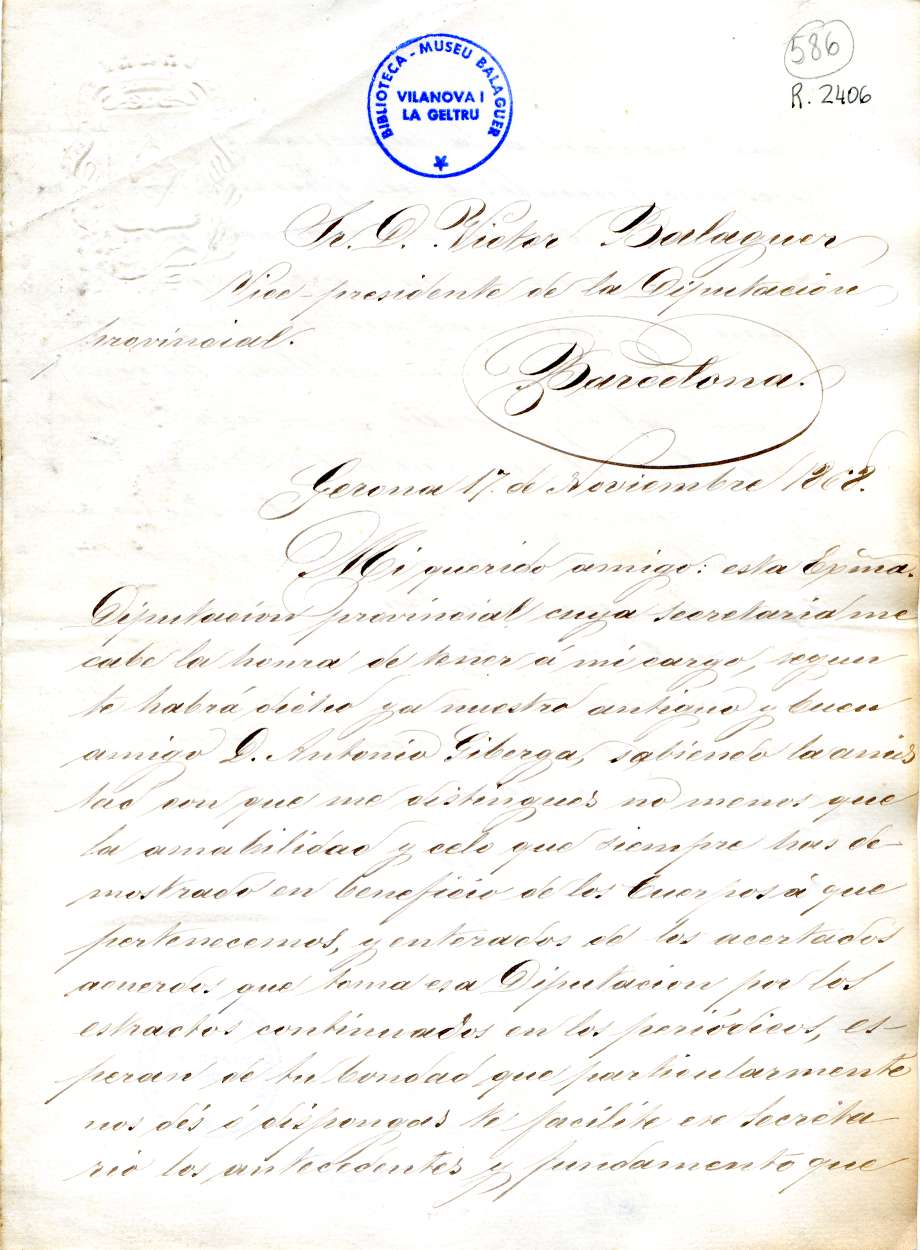 586
R. 2406
BIBLIOTECA - MUSEU BALAGUER
VILANOVA I
LA GELTRU
Sr. D. Victor Balaguer
Vice-presidente de la Diputacion
provincial.
Barcelona.
Gerona 17. de Noviembre 1868.
Mi querido amigo: esta Exma.
Diputacion provincial cuya secretaria me
cabe la honra de tener á mi cargo, segun
te habrá dicho ya nuestro antiguo y buen
amigo D. Antonio Giberga, sabiendo la amis
tad con que me distingues no menos que
la amabilidad y celo que siempre has de-
mostrado en beneficio de los Cuerpos á que
pertenecemos, y enterados de los acertados
acuerdos que toma esa Diputacion por los
estractos continuados en los periódicos, es-
peran de tu bondad que particularmente
nos dés ó dispongas te facilite ese Secreta
rio los antecedentes y fundamento que